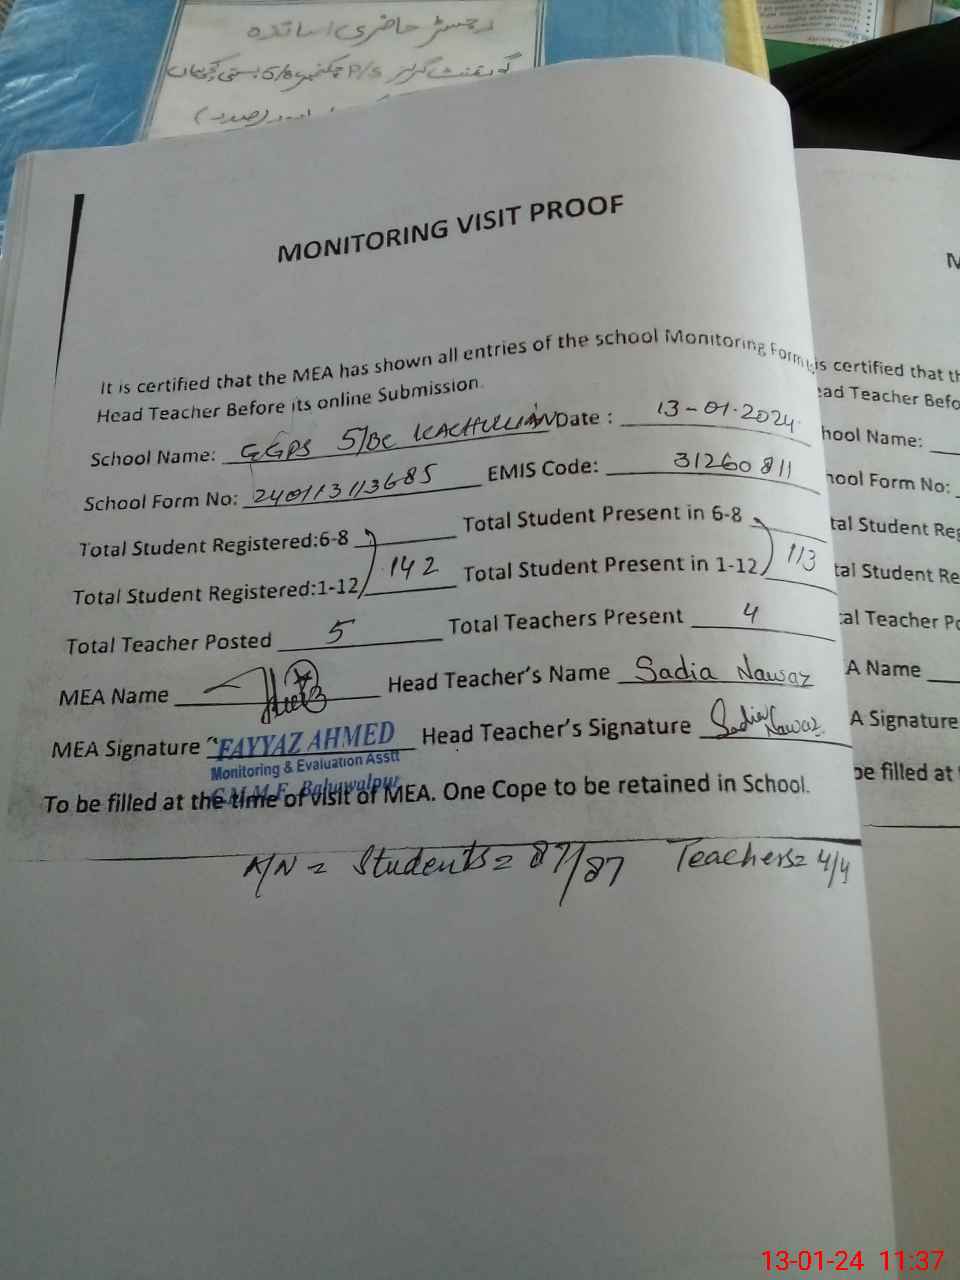 رجسٹر حاضری اساتذہ
گورنمنٹ گرلز P/S چکنمبر 5/BC بستی
(صدر)
MONITORING VISIT PROOF
It is certified that the MEA has shown all entries of the school Monitoring Form
Head Teacher Before its online Submission.
School Name: GGPS 5/BC KACHULLIAN Date : 13-01-2024
School Form No: 240113113685 EMIS Code: 31260811
Total Student Registered:6-8 Total Student Present in 6-8
Total Student Registered:1-12 142 Total Student Present in 1-12 113
Total Teacher Posted 5 Total Teachers Present 4
MEA Name Head Teacher's Name Sadia Nawaz
MEA Signature FAYYAZ AHMED Head Teacher's Signature Sadia Nawaz
Monitoring & Evaluation Asstt
C.M.M.F. Bahawalpur
To be filled at the time of visit of MEA. One Cope to be retained in School.
K/N = Students = 87/87 Teachers = 4/4
M
is certified that th
ead Teacher Befo
hool Name:
hool Form No:
tal Student Reg
tal Student Re
tal Teacher Po
A Name
A Signature
be filled at
13-01-24 11:37